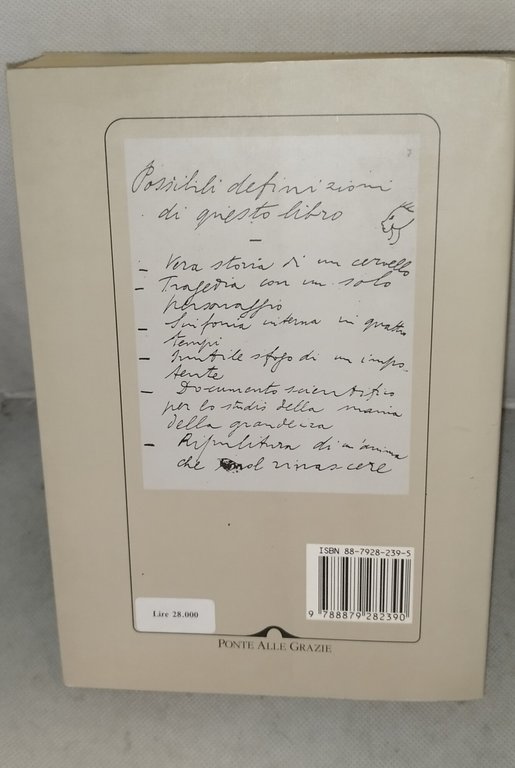 Possibili definizioni
di questo libro
—
- Vera storia di un cervello
- Tragedia con un solo
personaggio
- Sinfonia interna in quattro
tempi
- Inutile sfogo di un impo-
tente
- Documento scientifico
per lo studio della mania
della grandezza
- Ripulitura di un'anima
che vuol rinascere
ISBN 88-7928-239-5
9 788879 282390
Lire 28.000
PONTE ALLE GRAZIE